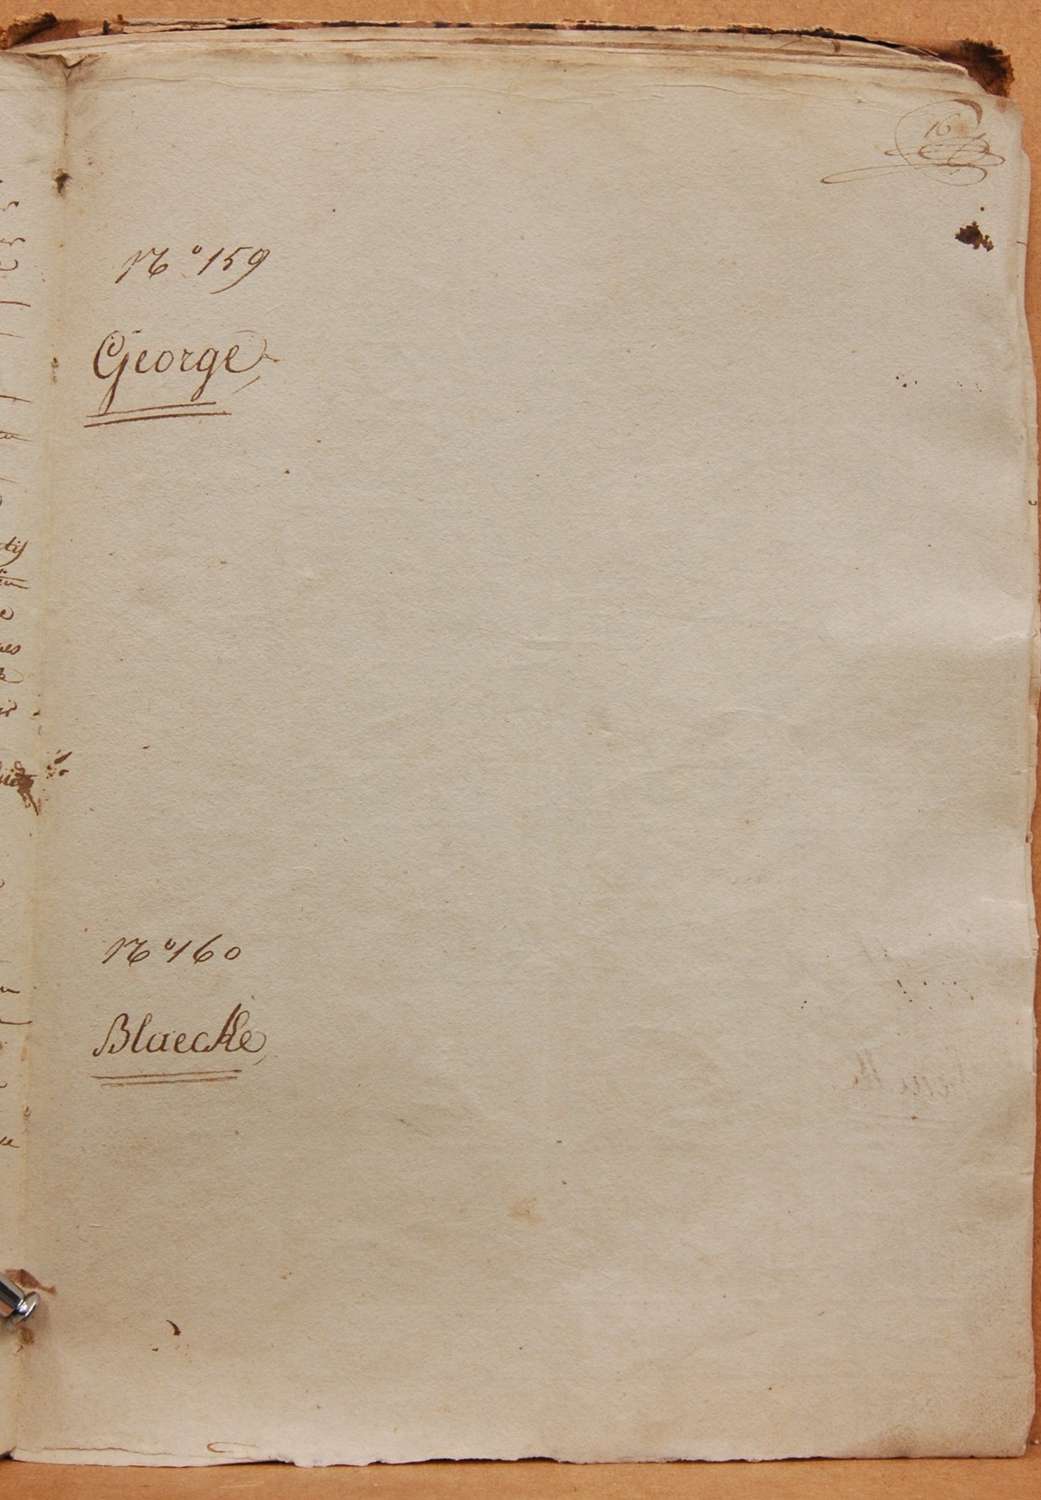 16
N.º 159
George
N.º 160
Blaecke